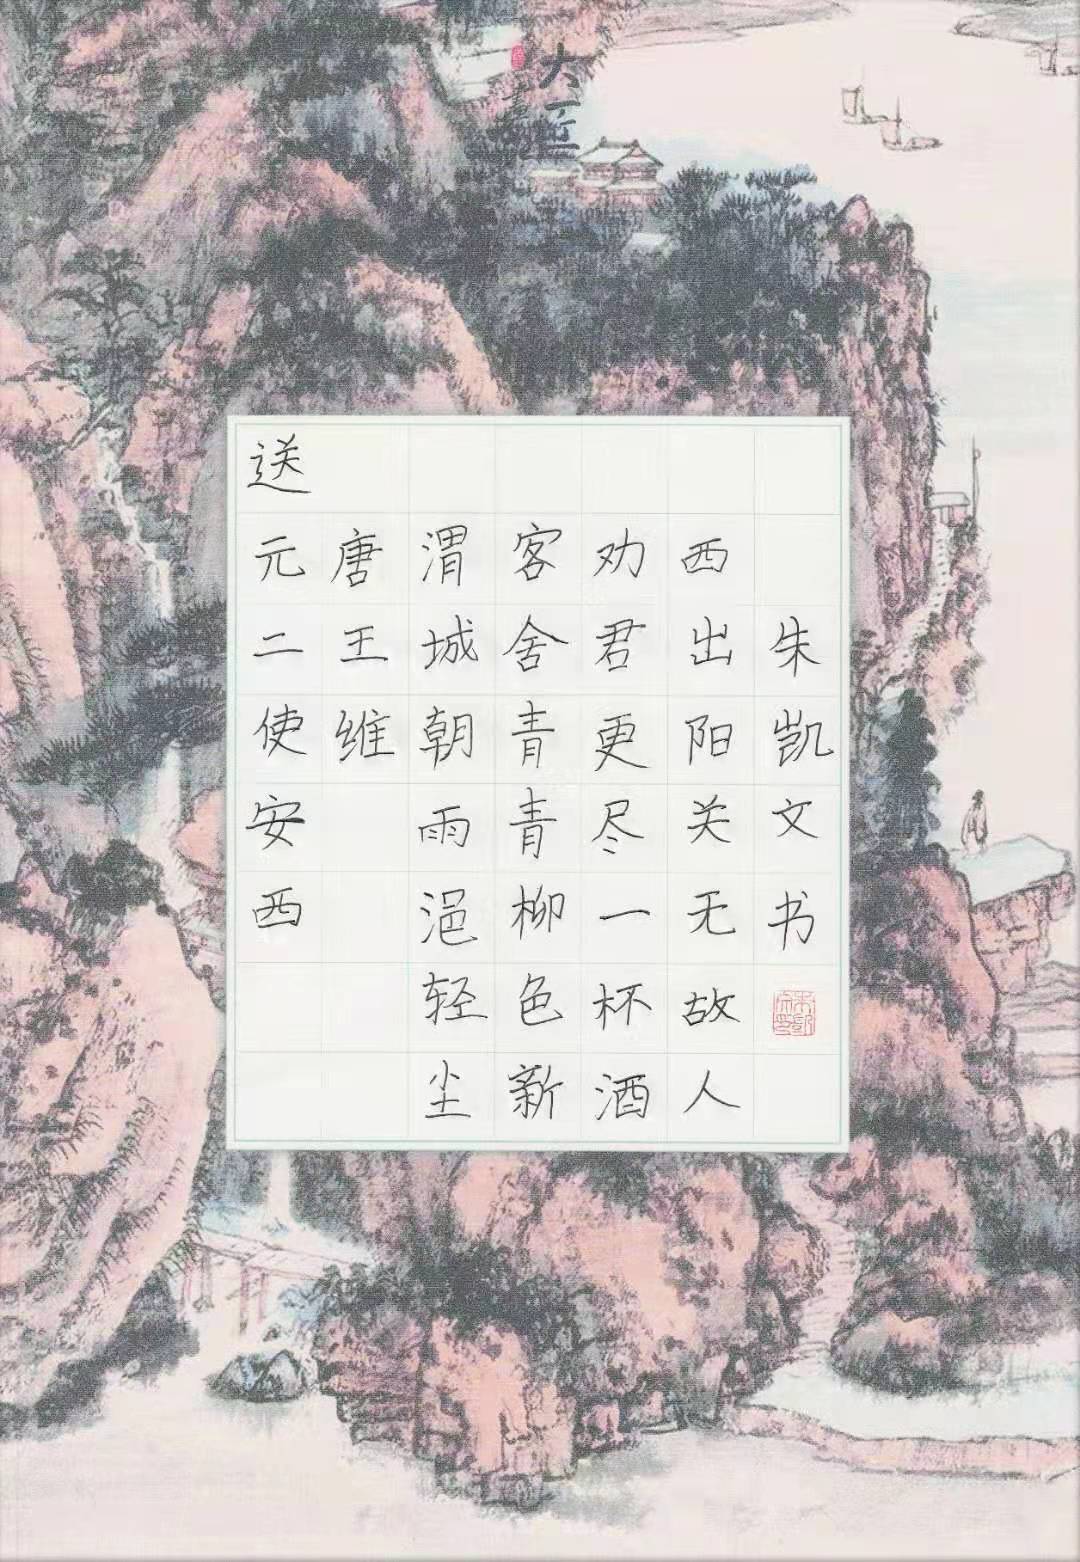 送元二使安西
唐王维
渭城朝雨浥轻尘
客舍青青柳色新
劝君更尽一杯酒
西出阳关无故人
朱凯文书